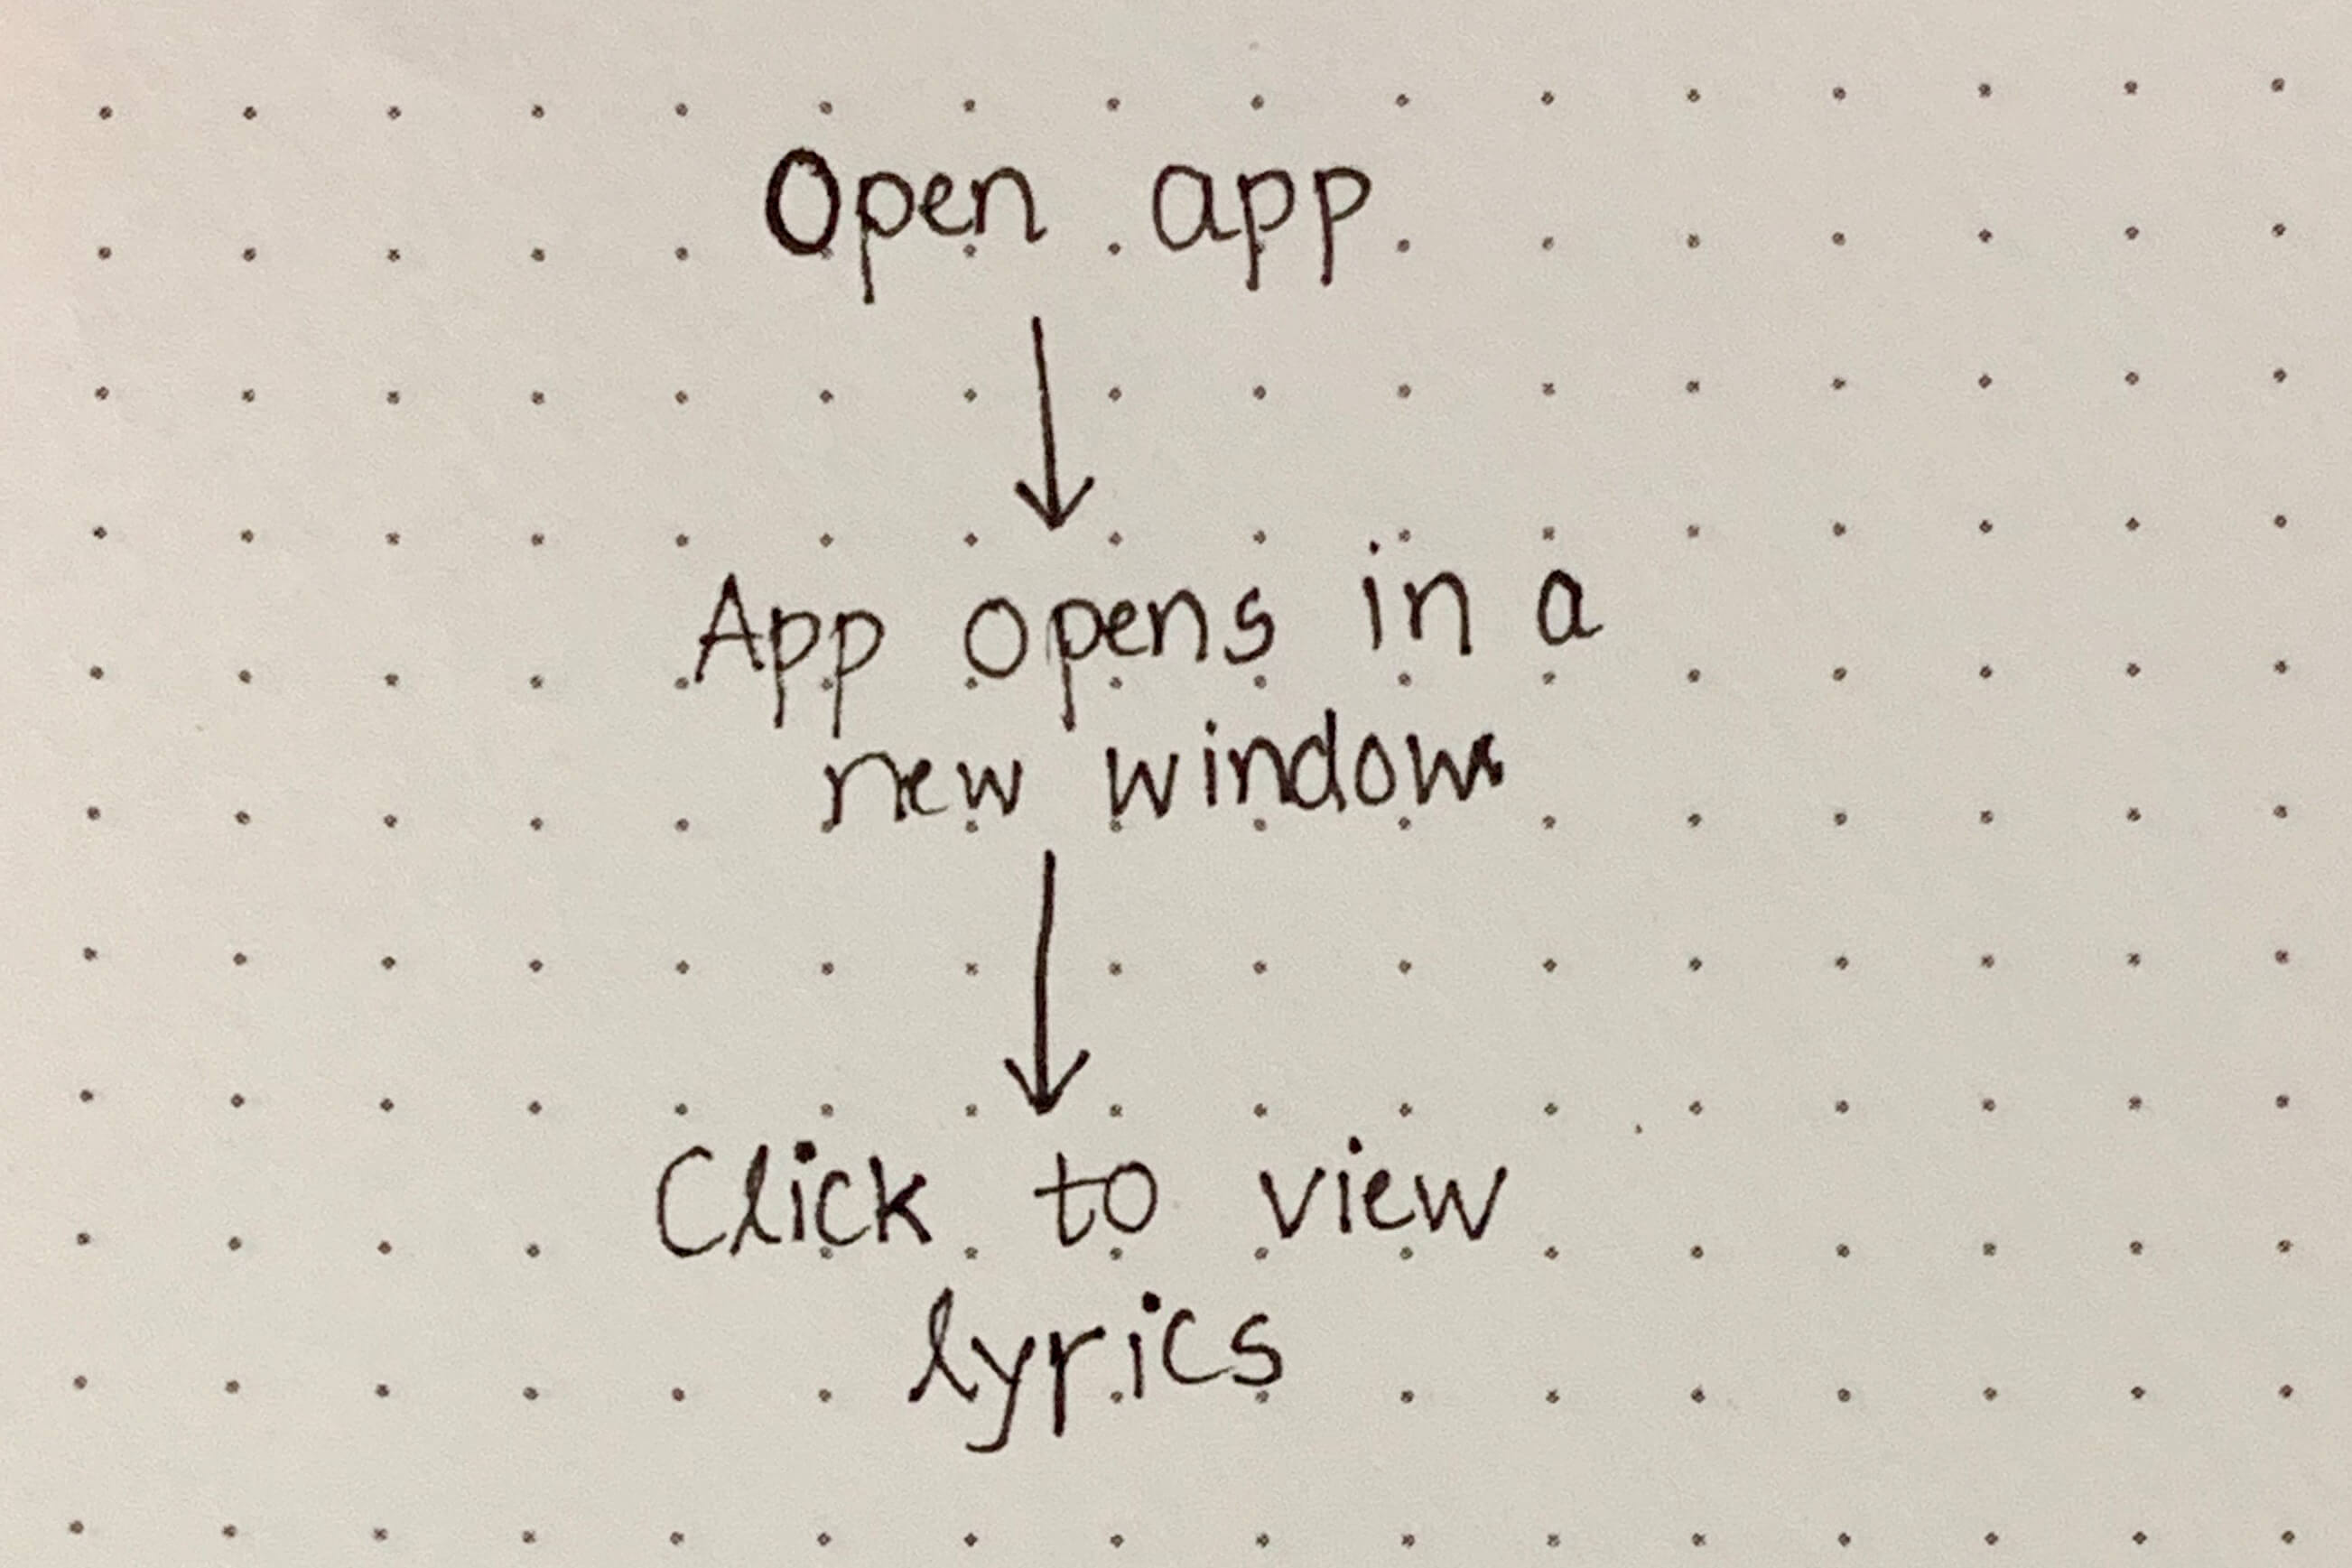 Open app
App opens in a
new window
Click to view
lyrics